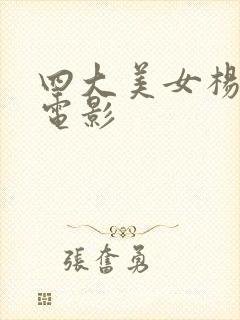 四大美女楊
電影
張奮勇